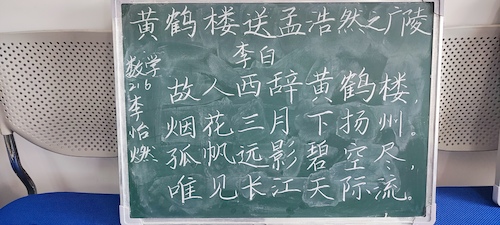 黄鹤楼送孟浩然之广陵
李白
数学
216
李
怡
燃
故人西辞黄鹤楼,
烟花三月下扬州。
孤帆远影碧空尽,
唯见长江天际流。